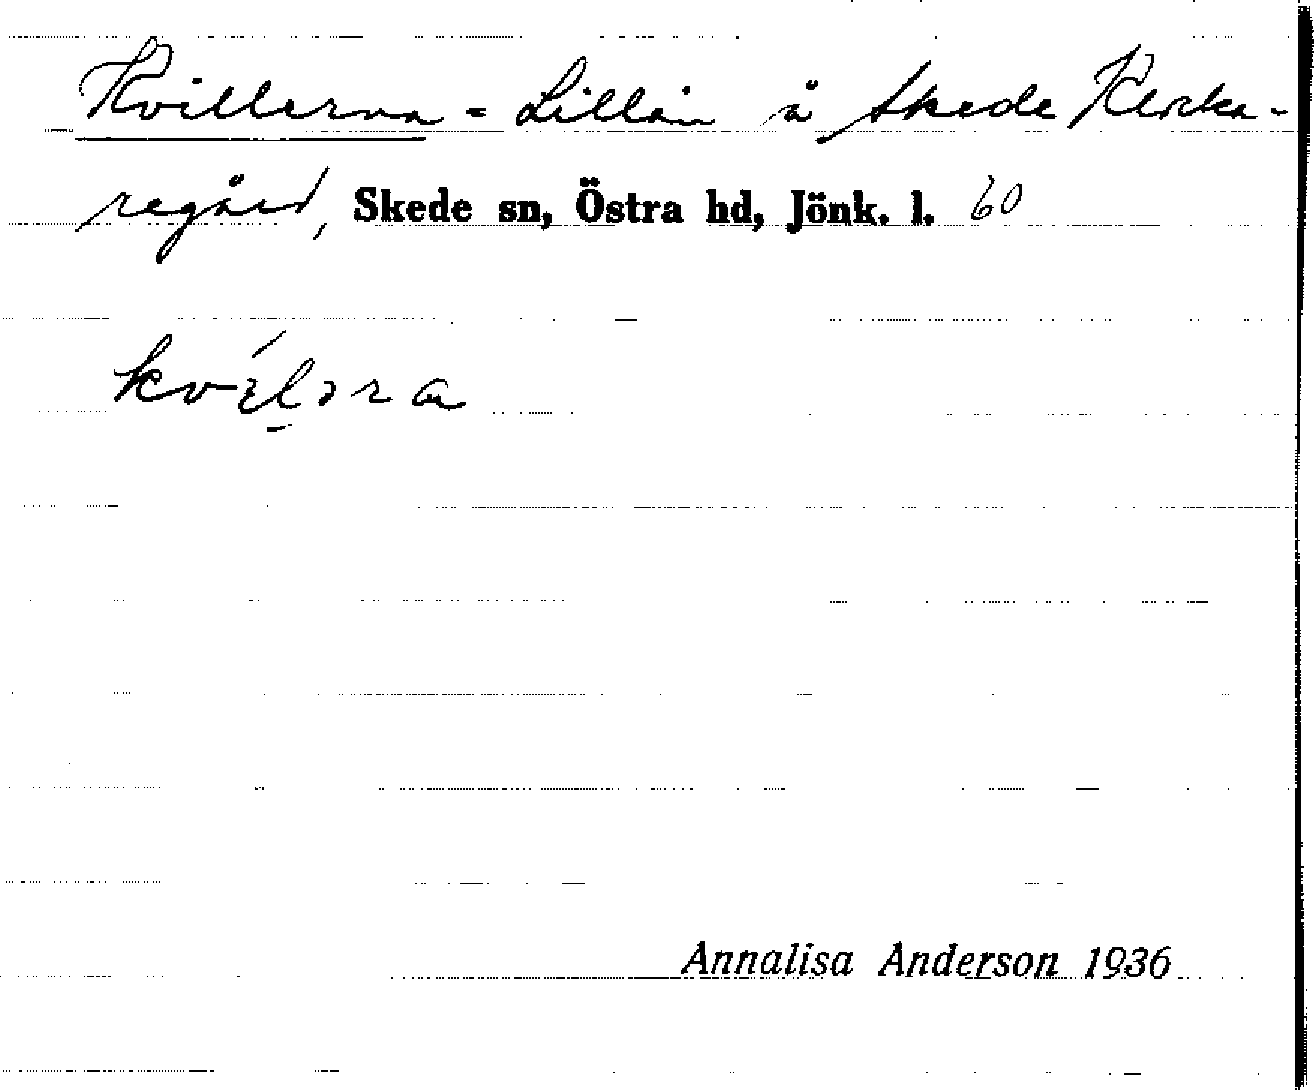 Kvillerna = Lillån å Skede Klocka-
regård, Skede sn, Östra hd, Jönk. l. 60
kvílǝra
Annalisa Anderson 1936